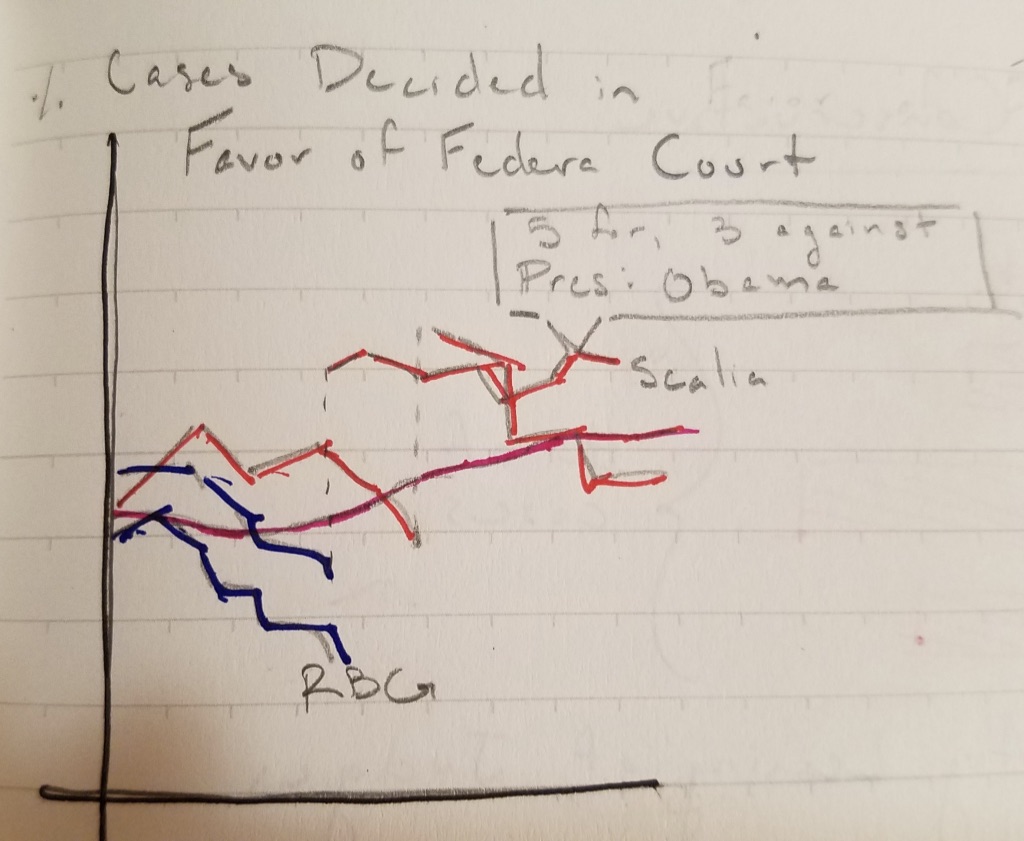 % Cases Decided in
Favor of Federa Court
5 for, 3 against
Pres: Obama
Scalia
RBG